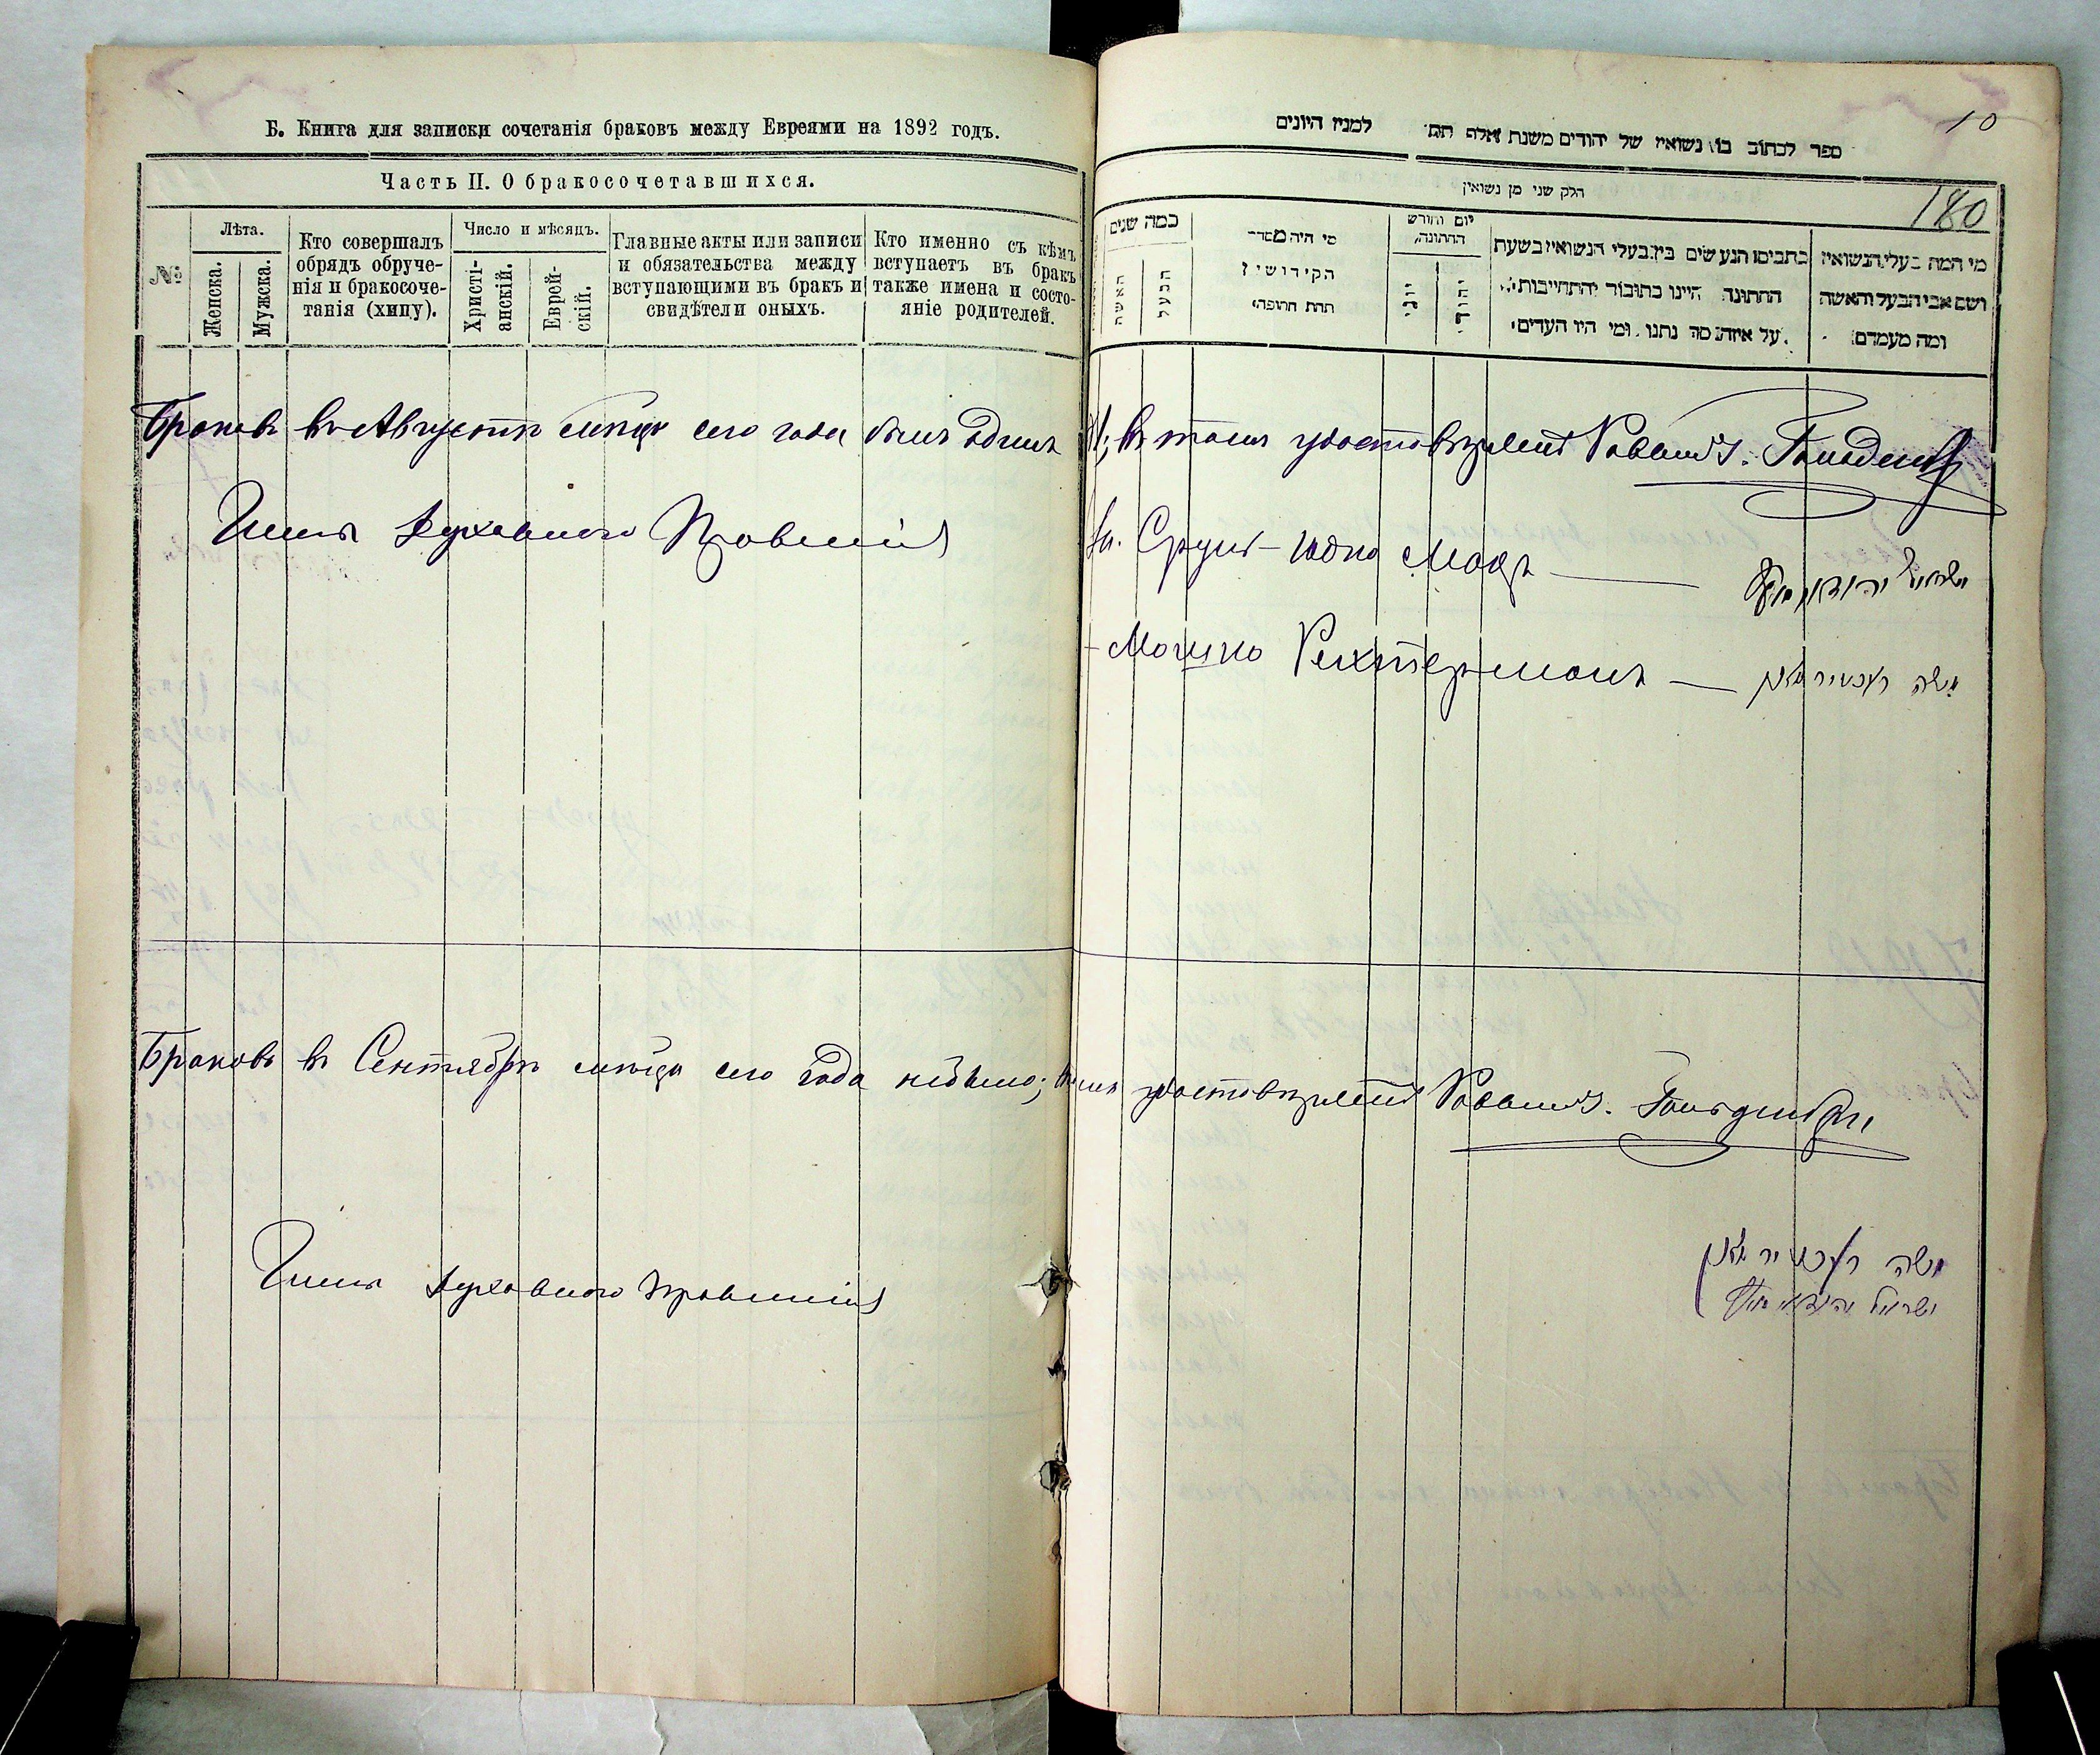 Б. Книга для записки сочетанія браковъ между Евреями на 1892 годъ.
Часть II. О бракосочетавшихся.
№
Лѣта.
Женска.
Мужска.
Кто совершалъ
обрядъ обруче-
нія и бракосоче-
танія (хипу).
Число и мѣсяцъ.
Христі-
анскій.
Еврей-
скій.
Главные акты или записи
и обязательства между
вступающими въ бракъ и
свидѣтели оныхъ.
Кто именно съ кѣмъ
вступаетъ въ бракъ
также имена и состо-
яніе родителей.
Браковъ въ Августѣ мѣсяцѣ сего года былъ одинъ
Члены Духовного Правленія
Браковъ въ Сентябрѣ мѣсяцѣ сего года небыло;
Члены Духовного Правленія
10
ספר לכתוב בו נשואין של יהודים משנת אלף תת למנין היונים
חלק שני מן נשואין
180
כמה שנים
האשה
הבעל
מי היה מסדר
הקידושין
תחת החופה
יום וחודש
החתונה
יוני
יהודי
כתביםו הנעשים בין בעלי הנשואין בשעת
החתונה היינו כתובות והתחייבות
על איזה סך נתנו ומי היו העדים
מי המה בעלי הנשואין
ושם אבי הבעל והאשה
ומה מעמדם
въ томъ удостовѣряетъ Раввинъ
Сруль-Юдко ישראל
Мошко Рехтерманъ — משה רעכטירמאן
удостовѣряетъ Раввинъ
משה רעכטירמאן
ישראל